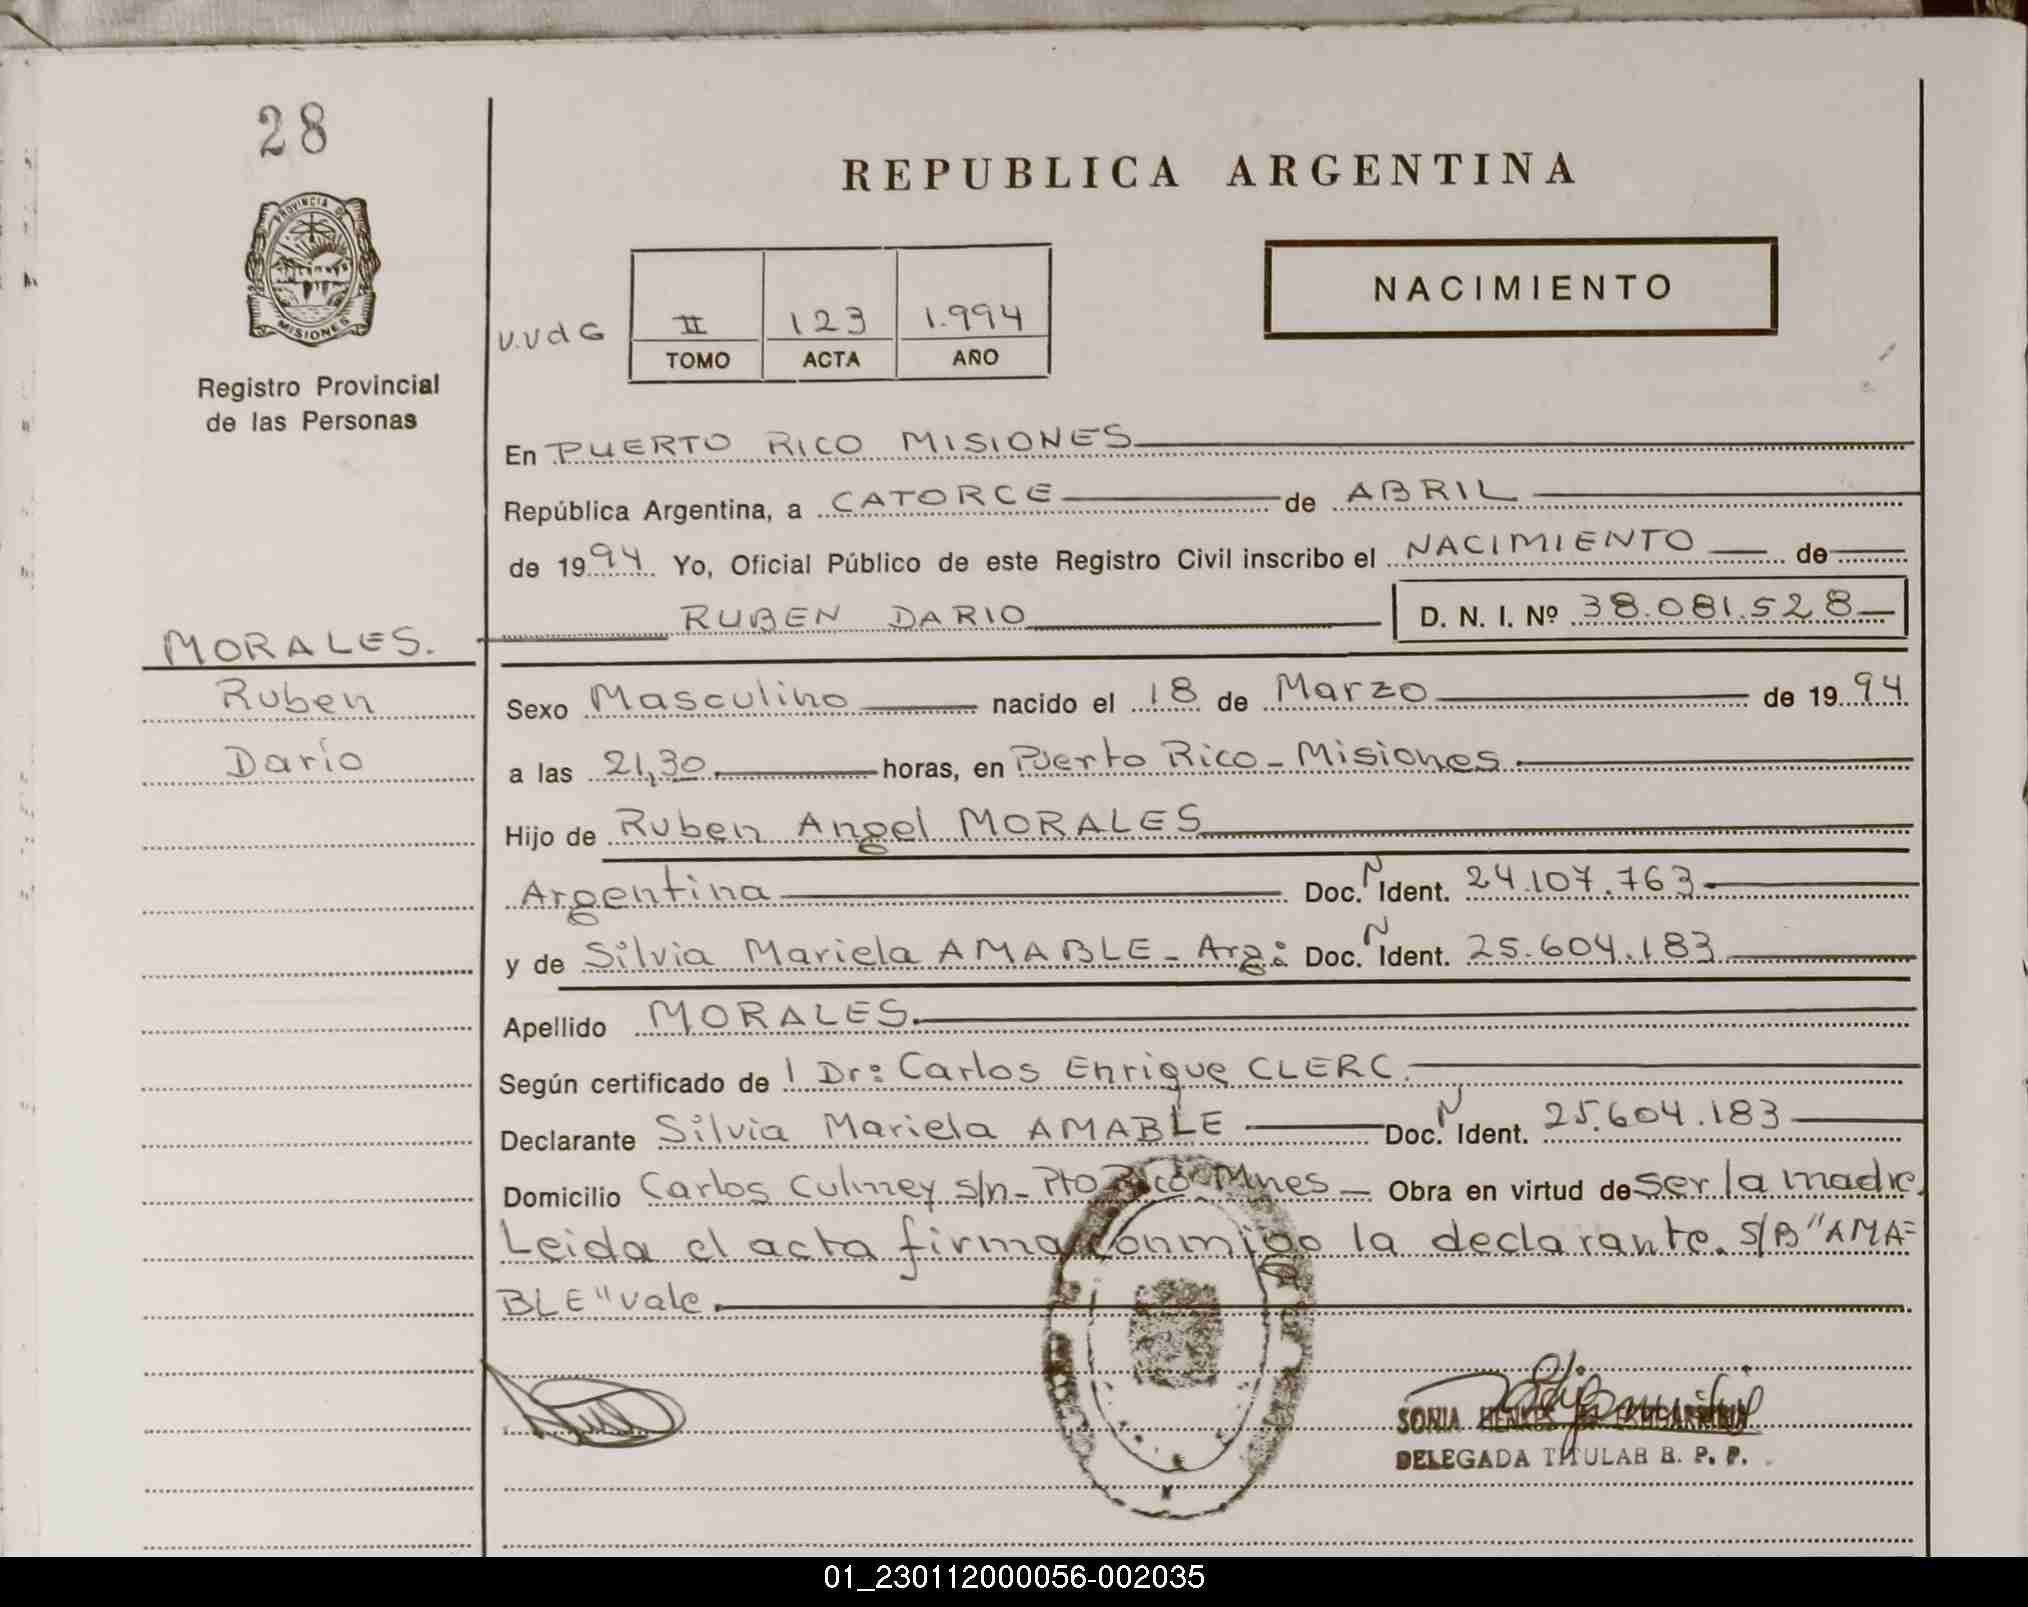 28
REPUBLICA ARGENTINA
PROVINCIA DE
MISIONES
NACIMIENTO
V.V d G
II 123 1.994
TOMO ACTA AÑO
Registro Provincial
de las Personas
En PUERTO RICO MISIONES
República Argentina, a CATORCE de ABRIL
de 1994 Yo, Oficial Público de este Registro Civil inscribo el NACIMIENTO de
RUBEN DARIO D. N. I. Nº 38.081.528
MORALES.
Ruben
Darío
Sexo Masculino nacido el 18 de Marzo de 1994
a las 21,30 horas, en Puerto Rico - Misiones.
Hijo de Ruben Angel MORALES
Argentina Doc. N Ident. 24.107.763
y de Silvia Mariela AMABLE - Arg: Doc. N Ident. 25.604.183
Apellido MORALES.
Según certificado de l Dr: Carlos Enrique CLERC.
Declarante Silvia Mariela AMABLE Doc. N Ident. 25.604.183
Domicilio Carlos Culmey s/n - Pto Rico Mnes - Obra en virtud de ser la madre.
Leida el acta firma conmigo la declarante. S/B "AMA=
BLE" vale.
SONIA
DELEGADA TITULAR R. P. P.
01_230112000056-002035